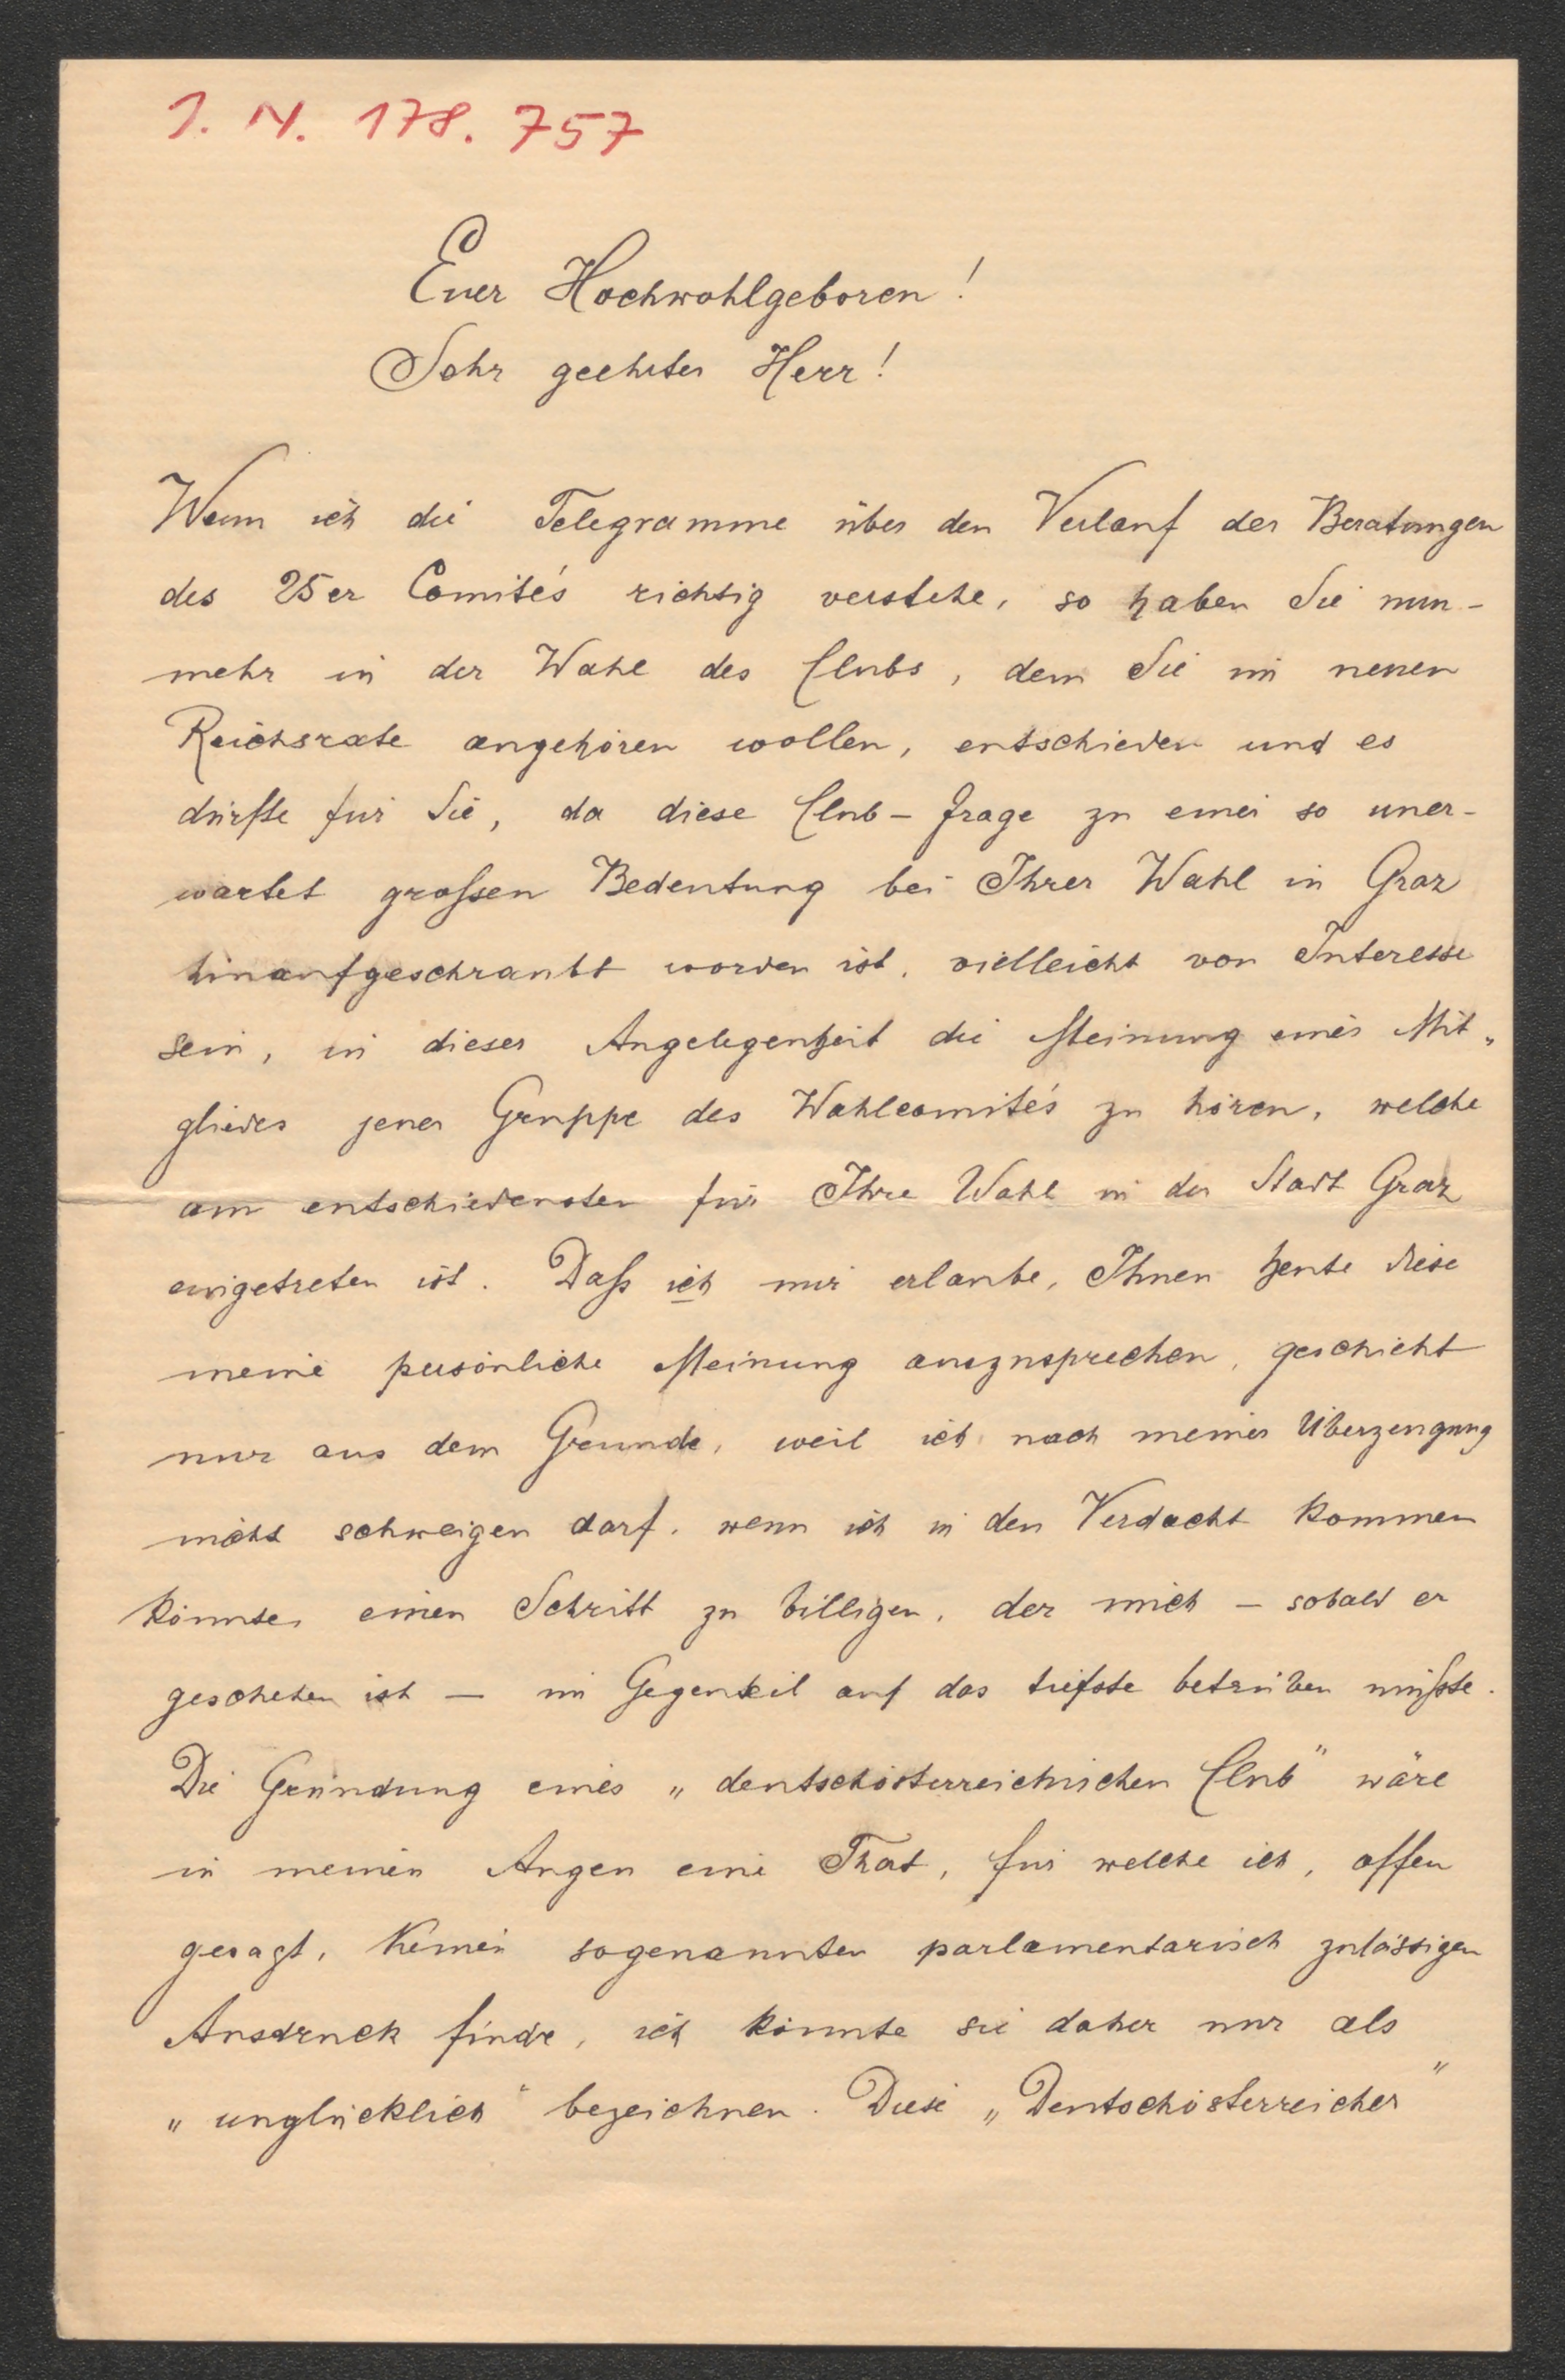 I. N. 178.757
Euer Hochwohlgeboren!
Sehr geehrter Herr!
Wenn ich die Telegramme über den Verlauf der Beratungen
des 25er Comités richtig verstehe, so haben Sie nun-
mehr in der Wahl des Clubs, dem Sie im neuen
Reichsrate angehören wollen, entschieden und es
dürfte für Sie, da diese Club-Frage zu einer so uner-
wartet großen Bedeutung bei Ihrer Wahl in Graz
hinaufgeschraubt worden ist, vielleicht von Interesse
sein, in dieser Angelegenheit die Meinung eines Mit„
gliedes jener Gruppe des Wahlcomités zu hören, welche
am entschiedensten für Ihre Wahl in der Stadt Graz
eingetreten ist. Daß ich mir erlaube, Ihnen heute diese
meine persönliche Meinung auszusprechen, geschieht
nur aus dem Grunde, weil ich nach meiner Überzeugung
nicht schweigen darf, wenn ich in den Verdacht kommen
könnte, einen Schritt zu billigen, der mich – sobald er
geschehen ist – im Gegenteil auf das tiefste betrüben müßte.
Die Gründung eines „deutschösterreichischen Club" wäre
in meinen Augen eine That, für welche ich, offen
gesagt, keinen sogenannten parlamentarisch zulässigen
Ausdruck finde, ich könnte sie daher nur als
„unglücklich" bezeichnen. Diese „Deutschösterreicher"